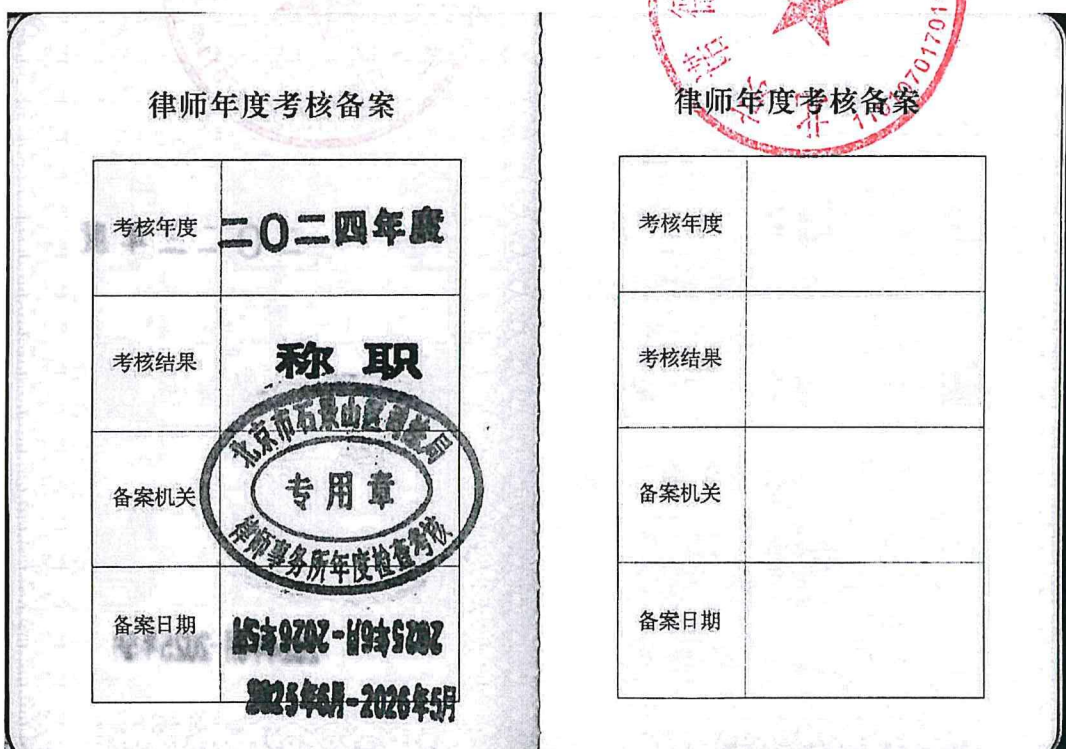 律师年度考核备案
考核年度
二〇二四年度
考核结果
称职
备案机关
北京市石景山区司法局
专用章
律师事务所年度检查考核
备案日期
2025年6月-2026年5月
2025年6月-2026年5月
律师年度考核备案
考核年度
考核结果
备案机关
备案日期